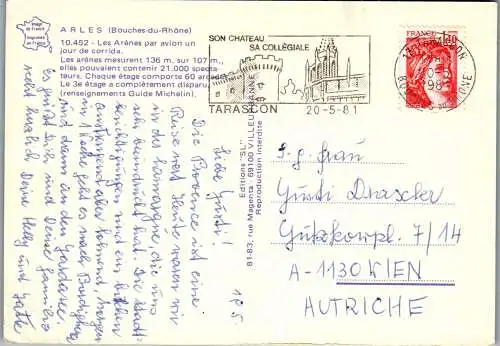 Image de France
ARLES (Bouches-du-Rhône)
10.452 - Les Arènes par avion un
jour de corrida.
Les arènes mesurent 136 m. sur 107 m.,
elles pouvaient contenir 21.000 specta-
teurs. Chaque étage comporte 60 arcades.
Le 3e étage a complètement disparu.
(renseignements Guide Michelin).
SON CHATEAU
SA COLLÉGIALE
TARASCON 20-5-81
1,40
13 TARASCON
20-5
1981
Editions "SL"
B1-83, rue Magenta 69100 VILLEURBANNE
Reproduction interdite
18/5
Liebe Gusti!
Die Provence ist eine
Reise wert. Heute waren wir
in der Camargue, die uns
sehr beeindruckt hat. Die Stadt-
besichtigungen sind ein bißchen
anstrengend aber lohnend. Morgen
in 1 Woche geht es nach
und dann an den Gardasee.
Es grüßt Dich und Deine Familie
recht herzlich Deine Helly und Gatte
S.g. Frau
Gusti Drascher
7/14
A-1130 WIEN
AUTRICHE